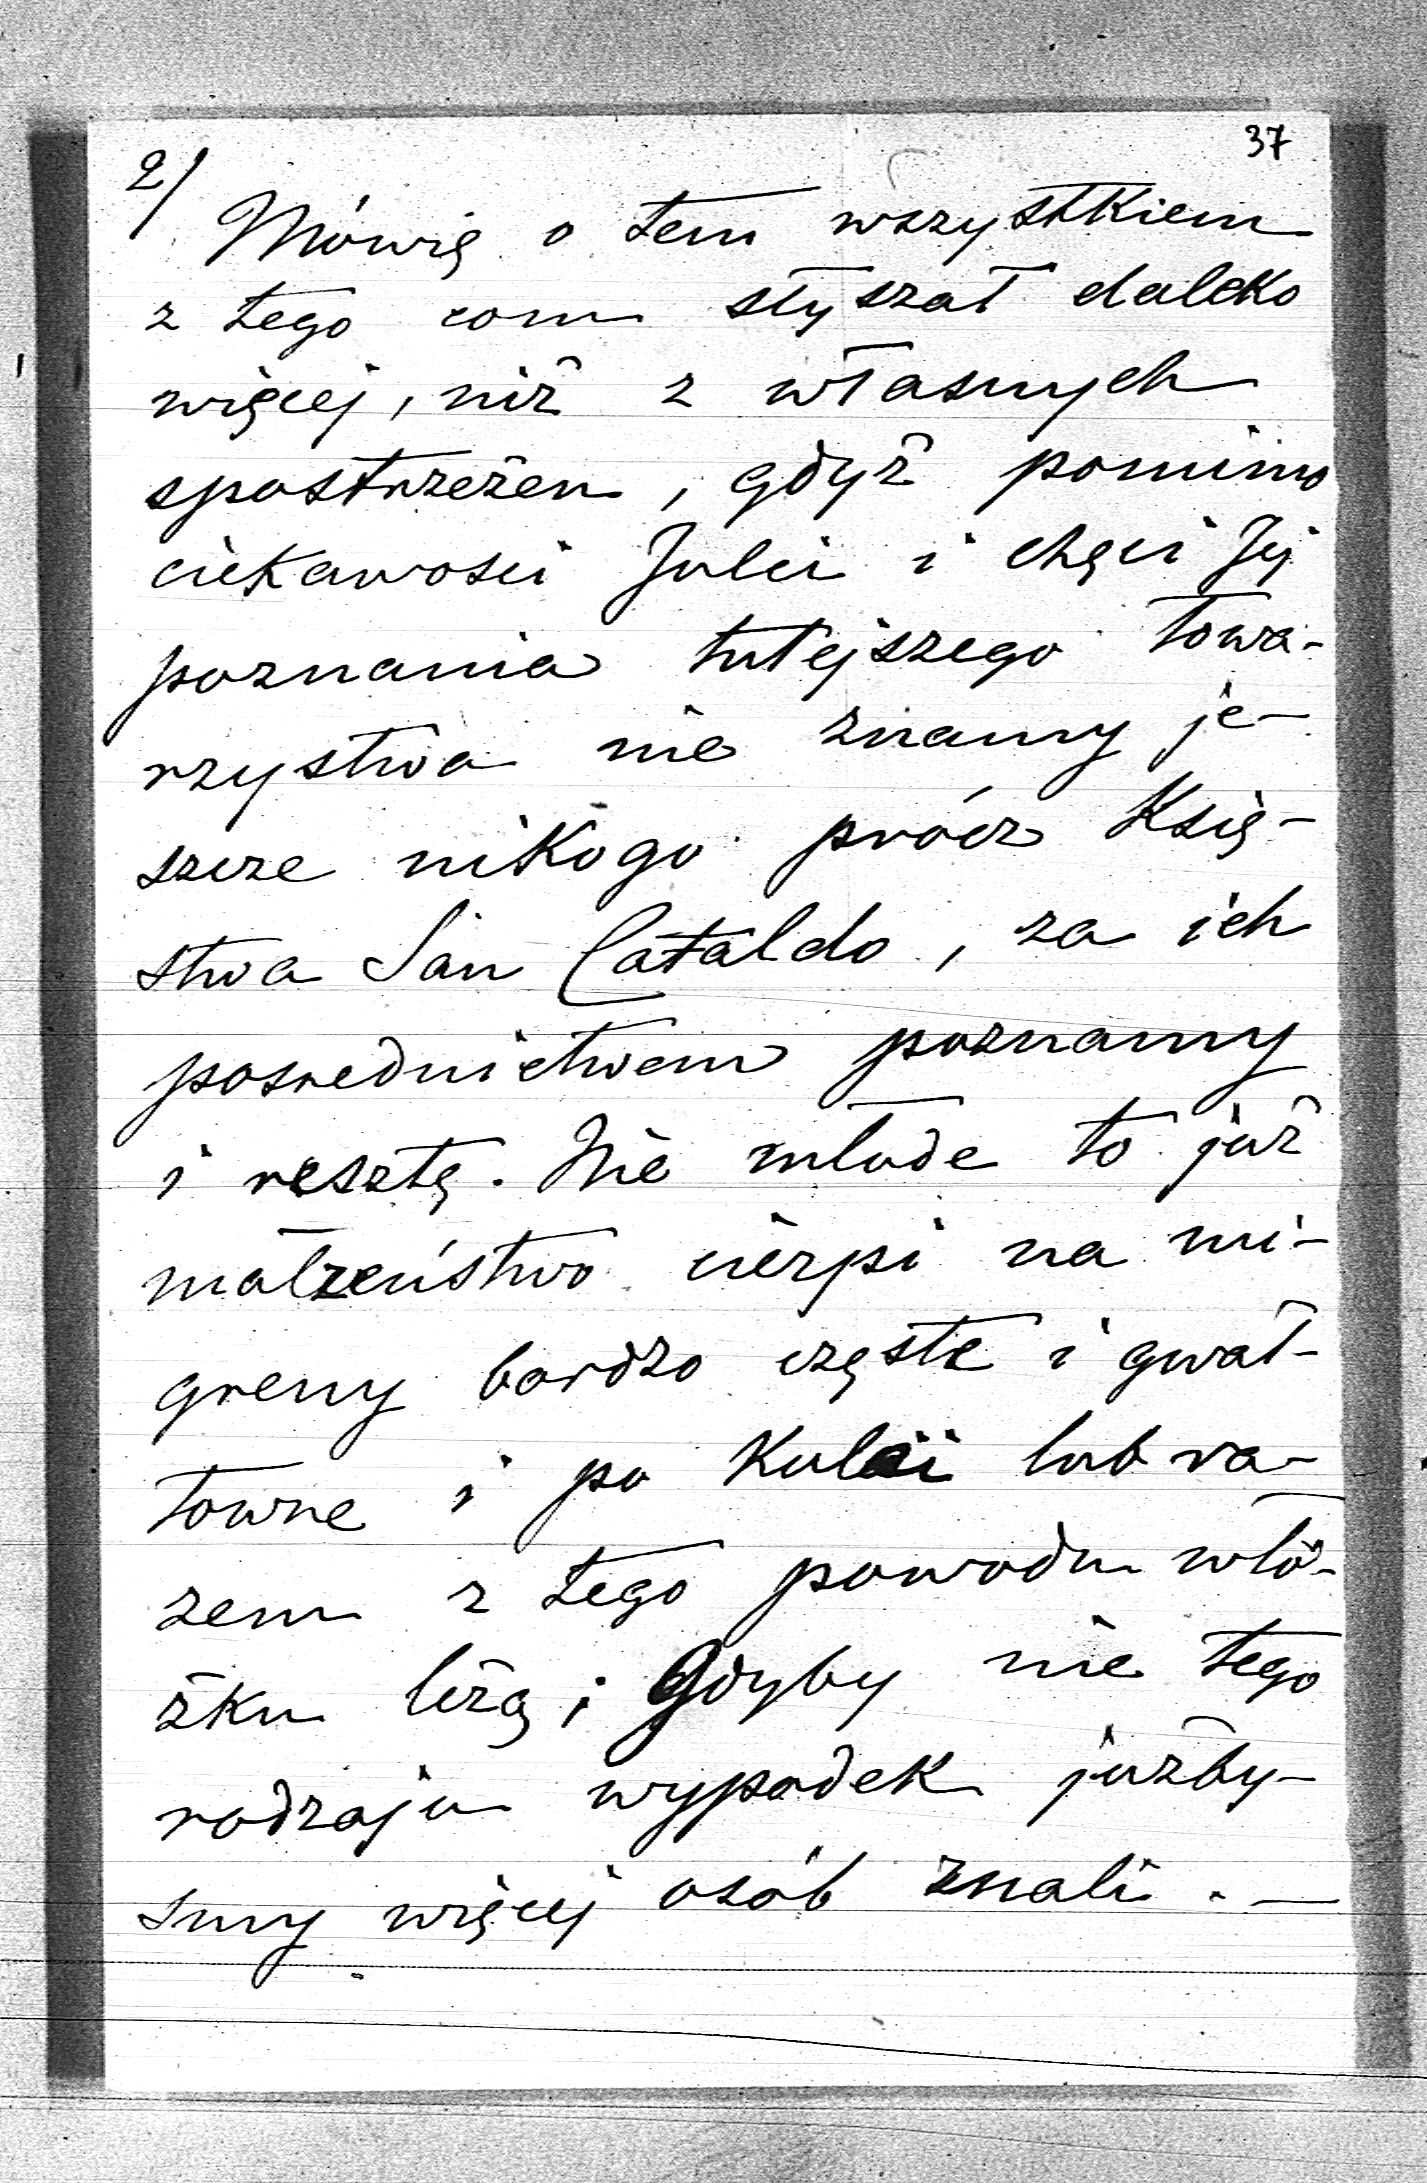 37
2/
Mówię o tem wszystkiem
z tego com słyszał daleko
więcej, niż z własnych
spostrzeżen, gdyż pomimo
ciekawosci Julci i chęci Jej
poznania tutejszego towa-
rzystwa nie znamy je-
szcze nikogo prócz Księ-
stwa San Cataldo, za ich
posrednictwem poznamy
i resztę. Nie młode to już
małzeństwo cierpi na mi-
greny bardzo częste i gwał-
towne i po kolei lub ra-
zem z tego powodu w łó-
żku leżą; Gdyby nie tego
rodzaju wypadek jużby-
smy więcej osób znali. —